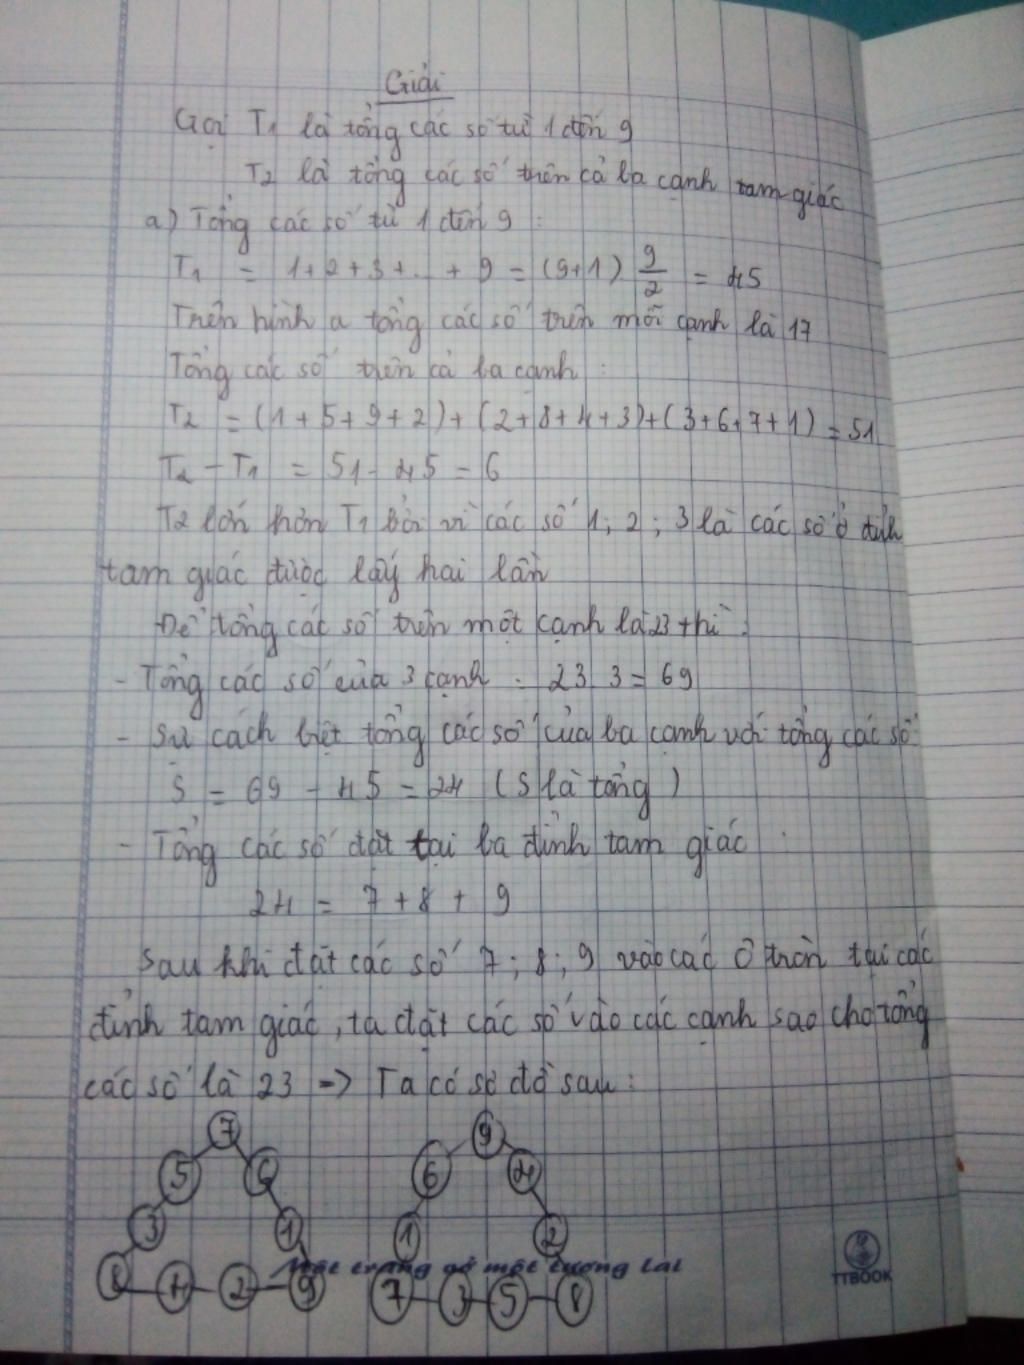 Giải
Gọi T1 là tổng các số từ 1 đến 9
T2 là tổng các số trên cả ba cạnh tam giác
a) Tổng các số từ 1 đến 9 :
T1 = 1+2+3+...+9 = (9+1) 9/2 = 45
Trên hình a tổng các số trên mỗi cạnh là 17
Tổng các số trên cả ba cạnh :
T2 = (1+5+9+2)+(2+8+4+3)+(3+6+7+1) = 51
T2 - T1 = 51 - 45 = 6
T2 lớn hơn T1 bởi vì các số 1; 2; 3 là các số ở đỉnh
tam giác được lấy hai lần
Để tổng các số trên một cạnh là 23 thì :
- Tổng các số của 3 cạnh : 23 . 3 = 69
- Sự cách biệt tổng các số của ba cạnh với tổng các số
S = 69 - 45 = 24 (S là tổng)
- Tổng các số đặt tại ba đỉnh tam giác :
24 = 7 + 8 + 9
Sau khi đặt các số 7; 8; 9 vào các ô tròn tại các
đỉnh tam giác, ta đặt các số vào các cạnh sao cho tổng
các số là 23 => Ta có sơ đồ sau :
7 9
5 6 6 4
3 1 1 2
8 4 2 9 7 3 5 8
Một trang vở một tương lai
TTBOOK